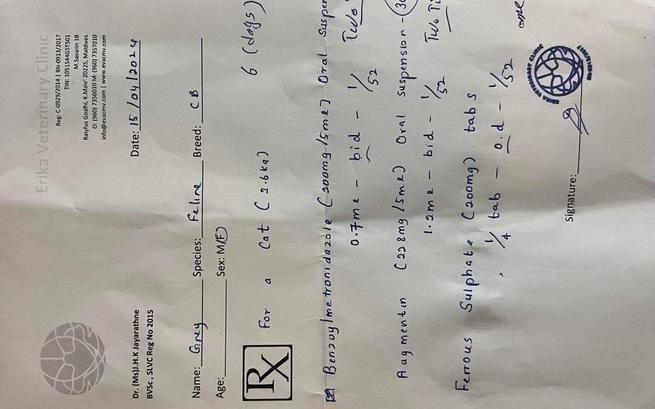 Erika Veterinary Clinic
Reg: C-0929/2014 | BN-0913/2017
TIN: 1091544GST501
M.Savarin 18
Raiyfus Goalhi, K.Male' 20225, Maldives
O: (960) 7356010 M: (960) 7357010
info@evacmv.com | www.evacmv.com
Dr. (Ms)J.H.K Jayarathne
BVSc., SLVC Reg No 2015
Date: 15/04/2024
Name: Grey Species: Feline Breed: CB
Age: Sex: M/F
Rx
For a Cat (2.6kg) 6 (days)
Benzoylmetronidazole (200mg/5ml) Oral Suspen
0.7ml - bid - 1/52 Two
Augmentin (228mg/5ml) Oral suspension -
1.2ml - bid - 1/52 Two Ti
Ferrous Sulphate (200mg) tabs
1/4 tab - o.d - 1/52 one
Signature:
ERIKA VETERINARY CLINIC